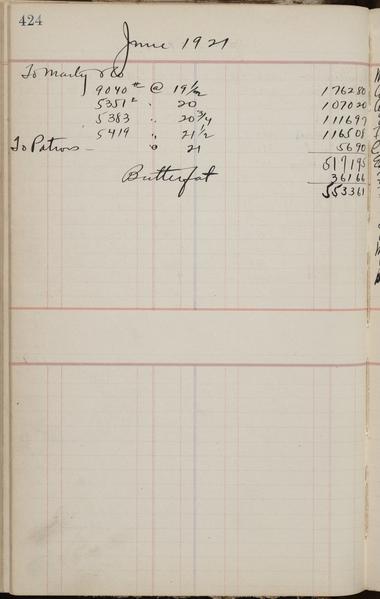 424
June 1921
To Marty & Co
9040 # @ 19 1/2 176280
5351 # " 20 107020
5383 " 20 3/4 111697
5419 " 21 1/2 116508
To Patrons - " 21 5690
517195
Butterfat 36166
553361